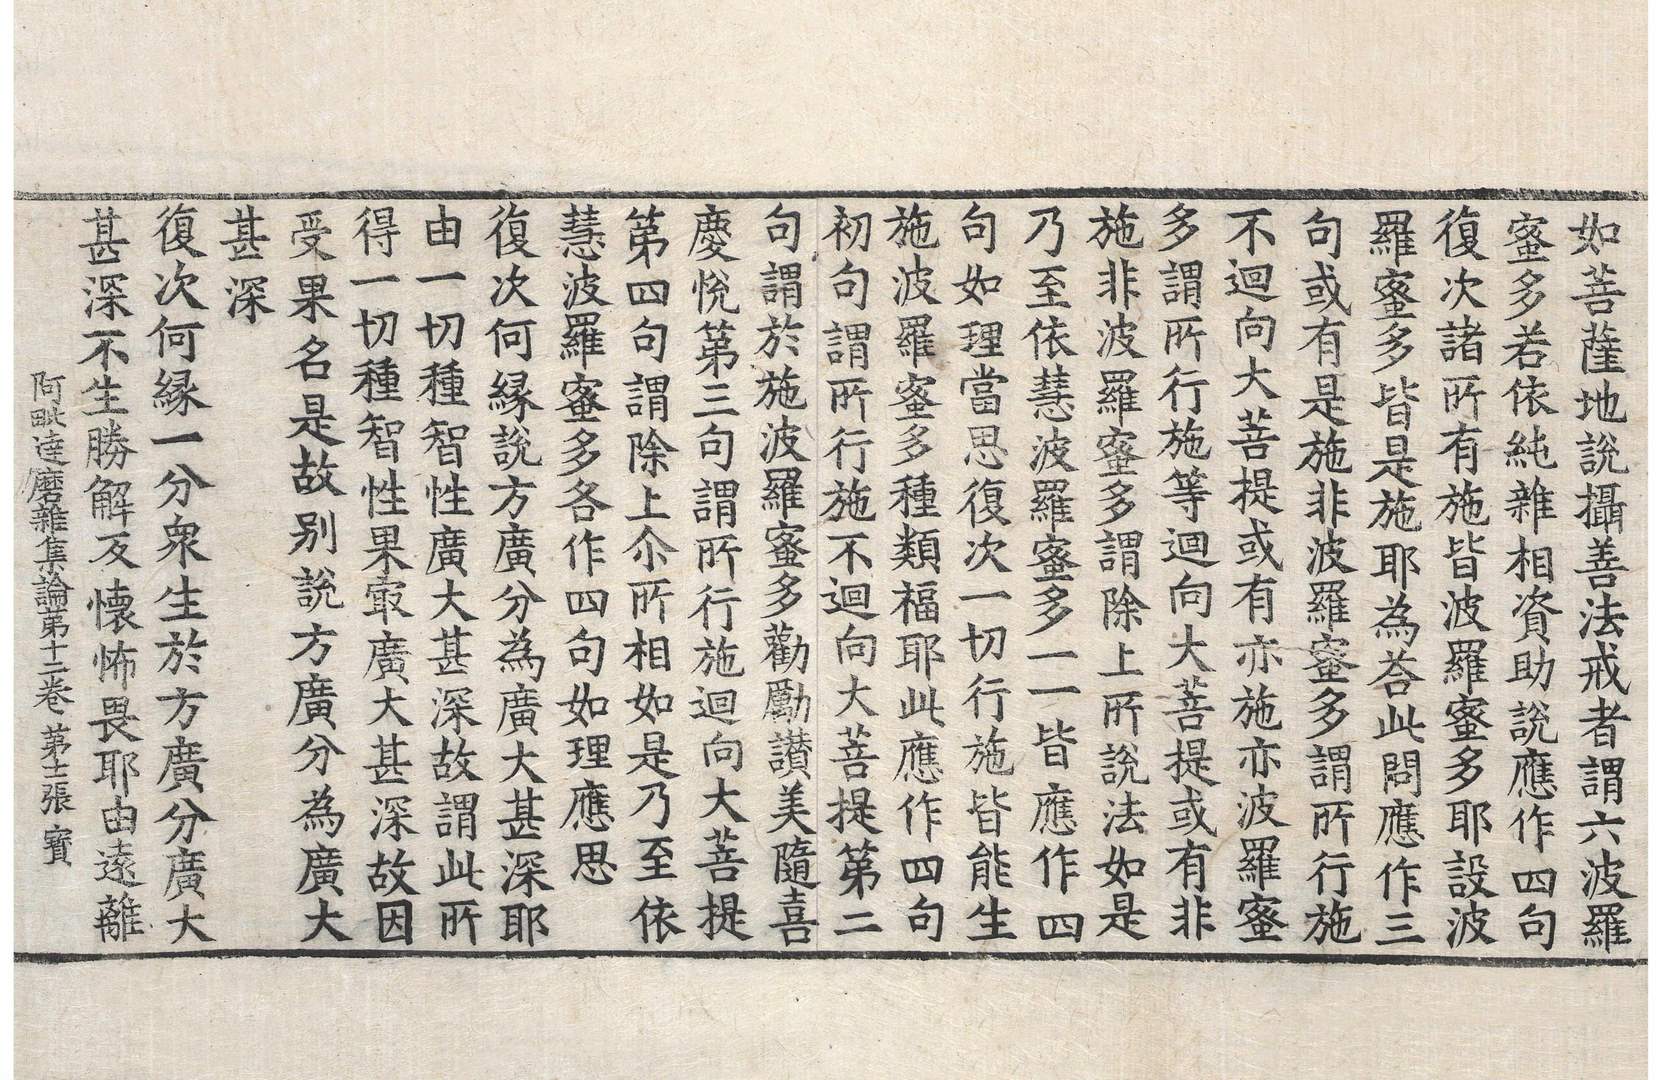 如菩薩地說攝善法戒者謂六波羅
蜜多若依純雜相資助說應作四句
復次諸所有施皆波羅蜜多耶設波
羅蜜多皆是施耶為荅此問應作三
句或有是施非波羅蜜多謂所行施
不迴向大菩提或有亦施亦波羅蜜
多謂所行施等迴向大菩提或有非
施非波羅蜜多謂除上所說法如是
乃至依慧波羅蜜多一一皆應作四
句如理當思復次一切行施皆能生
施波羅蜜多種類福耶此應作四句
初句謂所行施不迴向大菩提第二
句謂於施波羅蜜多勸勵讃美隨喜
慶悅第三句謂所行施迴向大菩提
第四句謂除上尒所相如是乃至依
慧波羅蜜多各作四句如理應思
復次何緣說方廣分為廣大甚深耶
由一切種智性廣大甚深故謂此所
得一切種智性果冣廣大甚深故因
受果名是故別說方廣分為廣大
甚深
復次何緣一分衆生於方廣分廣大
甚深不生勝解反懷怖畏耶由遠離
阿毗達磨雜集論第十二卷 第十二張 賓